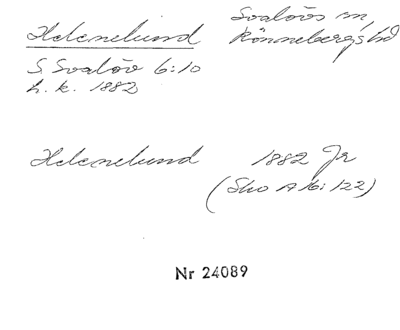 Helenelund Svalövs sn,
Rönnebergs hd
S. Svalöv 6:10
h. k. 1882
Helenelund 1882 Jr
(Sko A 16: 122)
Nr 24089